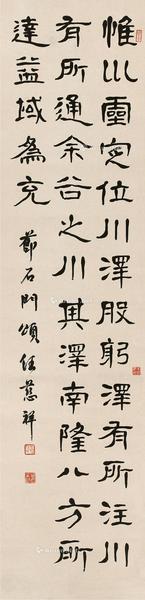 惟以靈定位川澤股躬澤有所注川
有所通余谷之川其澤南隆八方所
達益域為充
節石門頌任慈祥